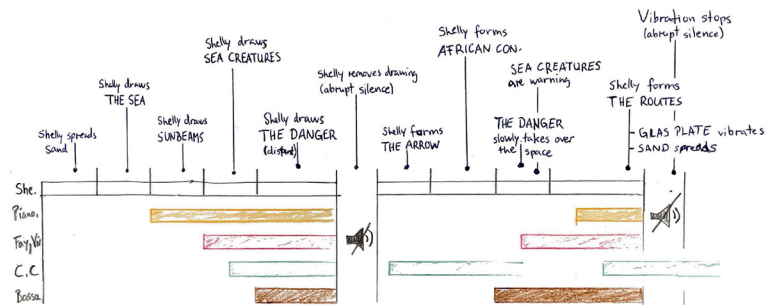 Shelly spreads
Sand
Shelly draws
THE SEA
Shelly draws
SUNBEAMS
Shelly draws
SEA CREATURES
Shelly draws
THE DANGER
(distant)
Shelly removes drawing
(abrupt silence)
Shelly forms
THE ARROW
Shelly forms
AFRICAN CON.
SEA CREATURES
are warning
THE DANGER
slowly takes over
the space
Shelly forms
THE ROUTES
- GLAS PLATE vibrates
- SAND spreads
Vibration stops
(abrupt silence)
She.
Piano.
C.C
Bossa